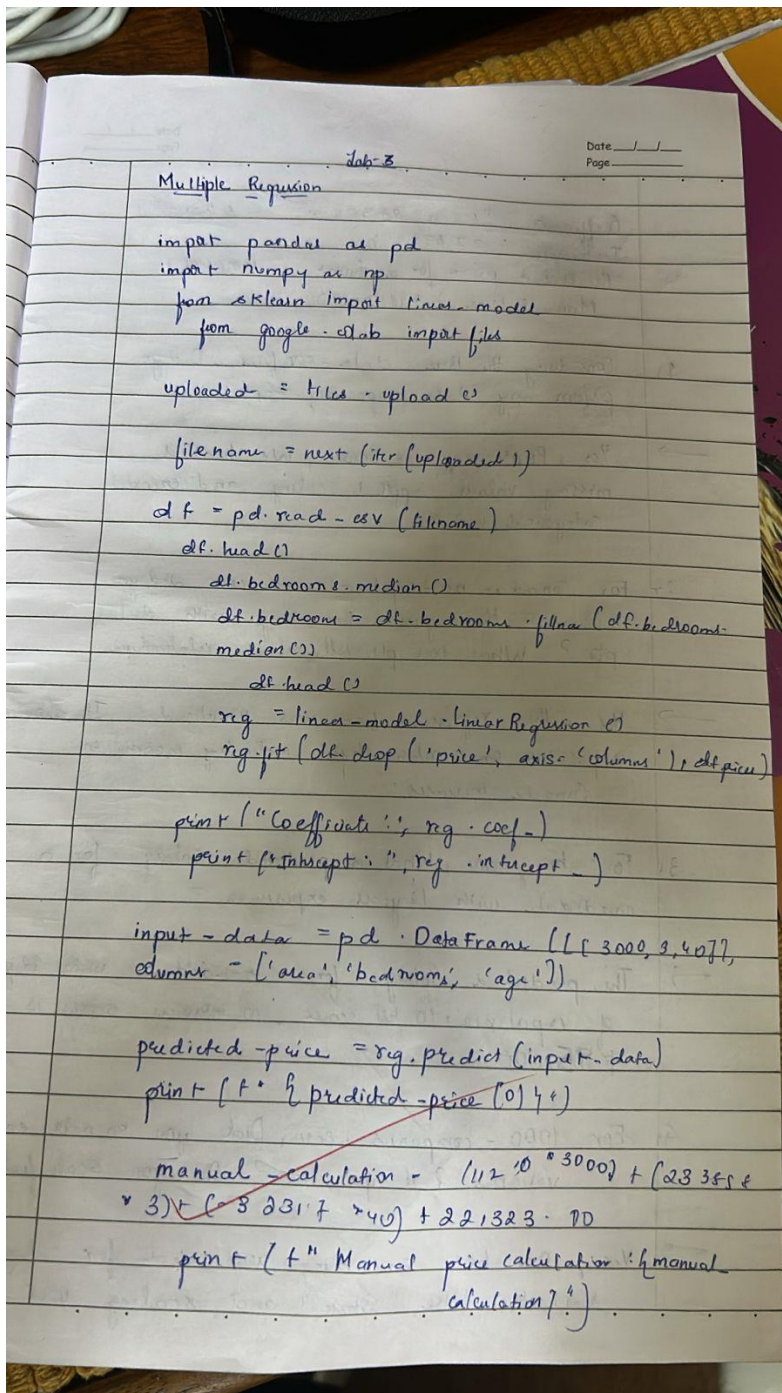 Lab-3
Date __/__/__
Page ______
Multiple Regression
import pandas as pd
import numpy as np
from sklearn import linear_model
from google.colab import files
uploaded = files.upload()
filename = next(iter(uploaded))
df = pd.read_csv(filename)
df.head()
df.bedrooms.median()
df.bedrooms = df.bedrooms.fillna(df.bedrooms.
median())
df.head()
reg = linear_model.LinearRegression()
reg.fit(df.drop('price', axis='columns'), df.price)
print("Coefficients:", reg.coef_)
print("Intercept:", reg.intercept_)
input_data = pd.DataFrame([[3000, 3, 40]],
columns=['area', 'bedrooms', 'age'])
predicted_price = reg.predict(input_data)
print(f"{predicted_price[0]}")
manual_calculation = (112.0*3000) + (23388
*3) + (-3231.7*40) + 221323.00
print(f"Manual price calculation: {manual_
calculation}")